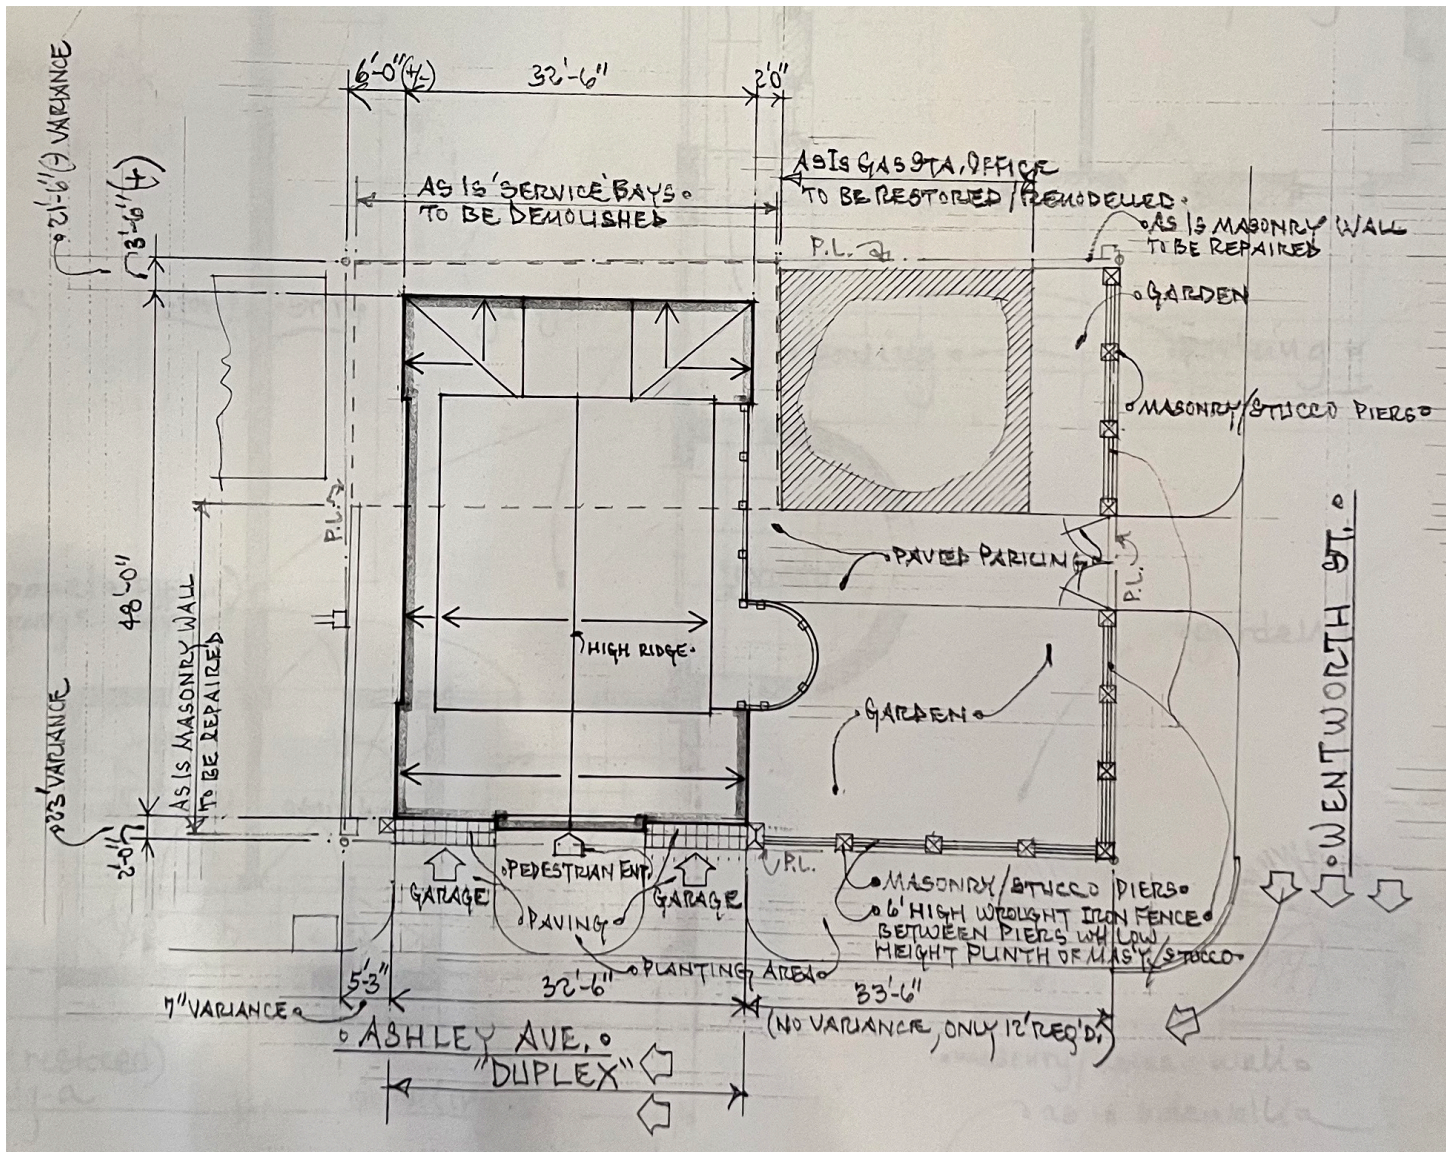 6'-0"(+/-)
32'-6"
2'0"
21'-6"(+) VARIANCE
3'-6"(+)
AS IS 'SERVICE' BAYS.
TO BE DEMOLISHED
AS IS GAS STA. OFFICE
TO BE RESTORED/REMODELLED.
P.L.
AS IS MASONRY WALL
TO BE REPAIRED
GARDEN
MASONRY/STUCCO PIERS
P.L.
PAVED PARKING
P.L.
48'-0"
AS IS MASONRY WALL
TO BE REPAIRED
HIGH RIDGE
GARDEN
WENTWORTH ST.
23' VARIANCE
2'-0"
PEDESTRIAN ENT.
P.L.
GARAGE
GARAGE
PAVING
MASONRY/STUCCO PIERS
6' HIGH WROUGHT IRON FENCE
BETWEEN PIERS W/ LOW
HEIGHT PLINTH OF MAS'Y/STUCCO
PLANTING AREA
5'-3"
32'-6"
33'-6"
7" VARIANCE
(NO VARIANCE, ONLY 12' REQ'D.)
ASHLEY AVE.
"DUPLEX"